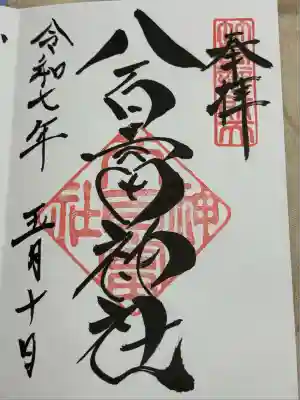 奉拝
八百富神社
令和七年 五月十日